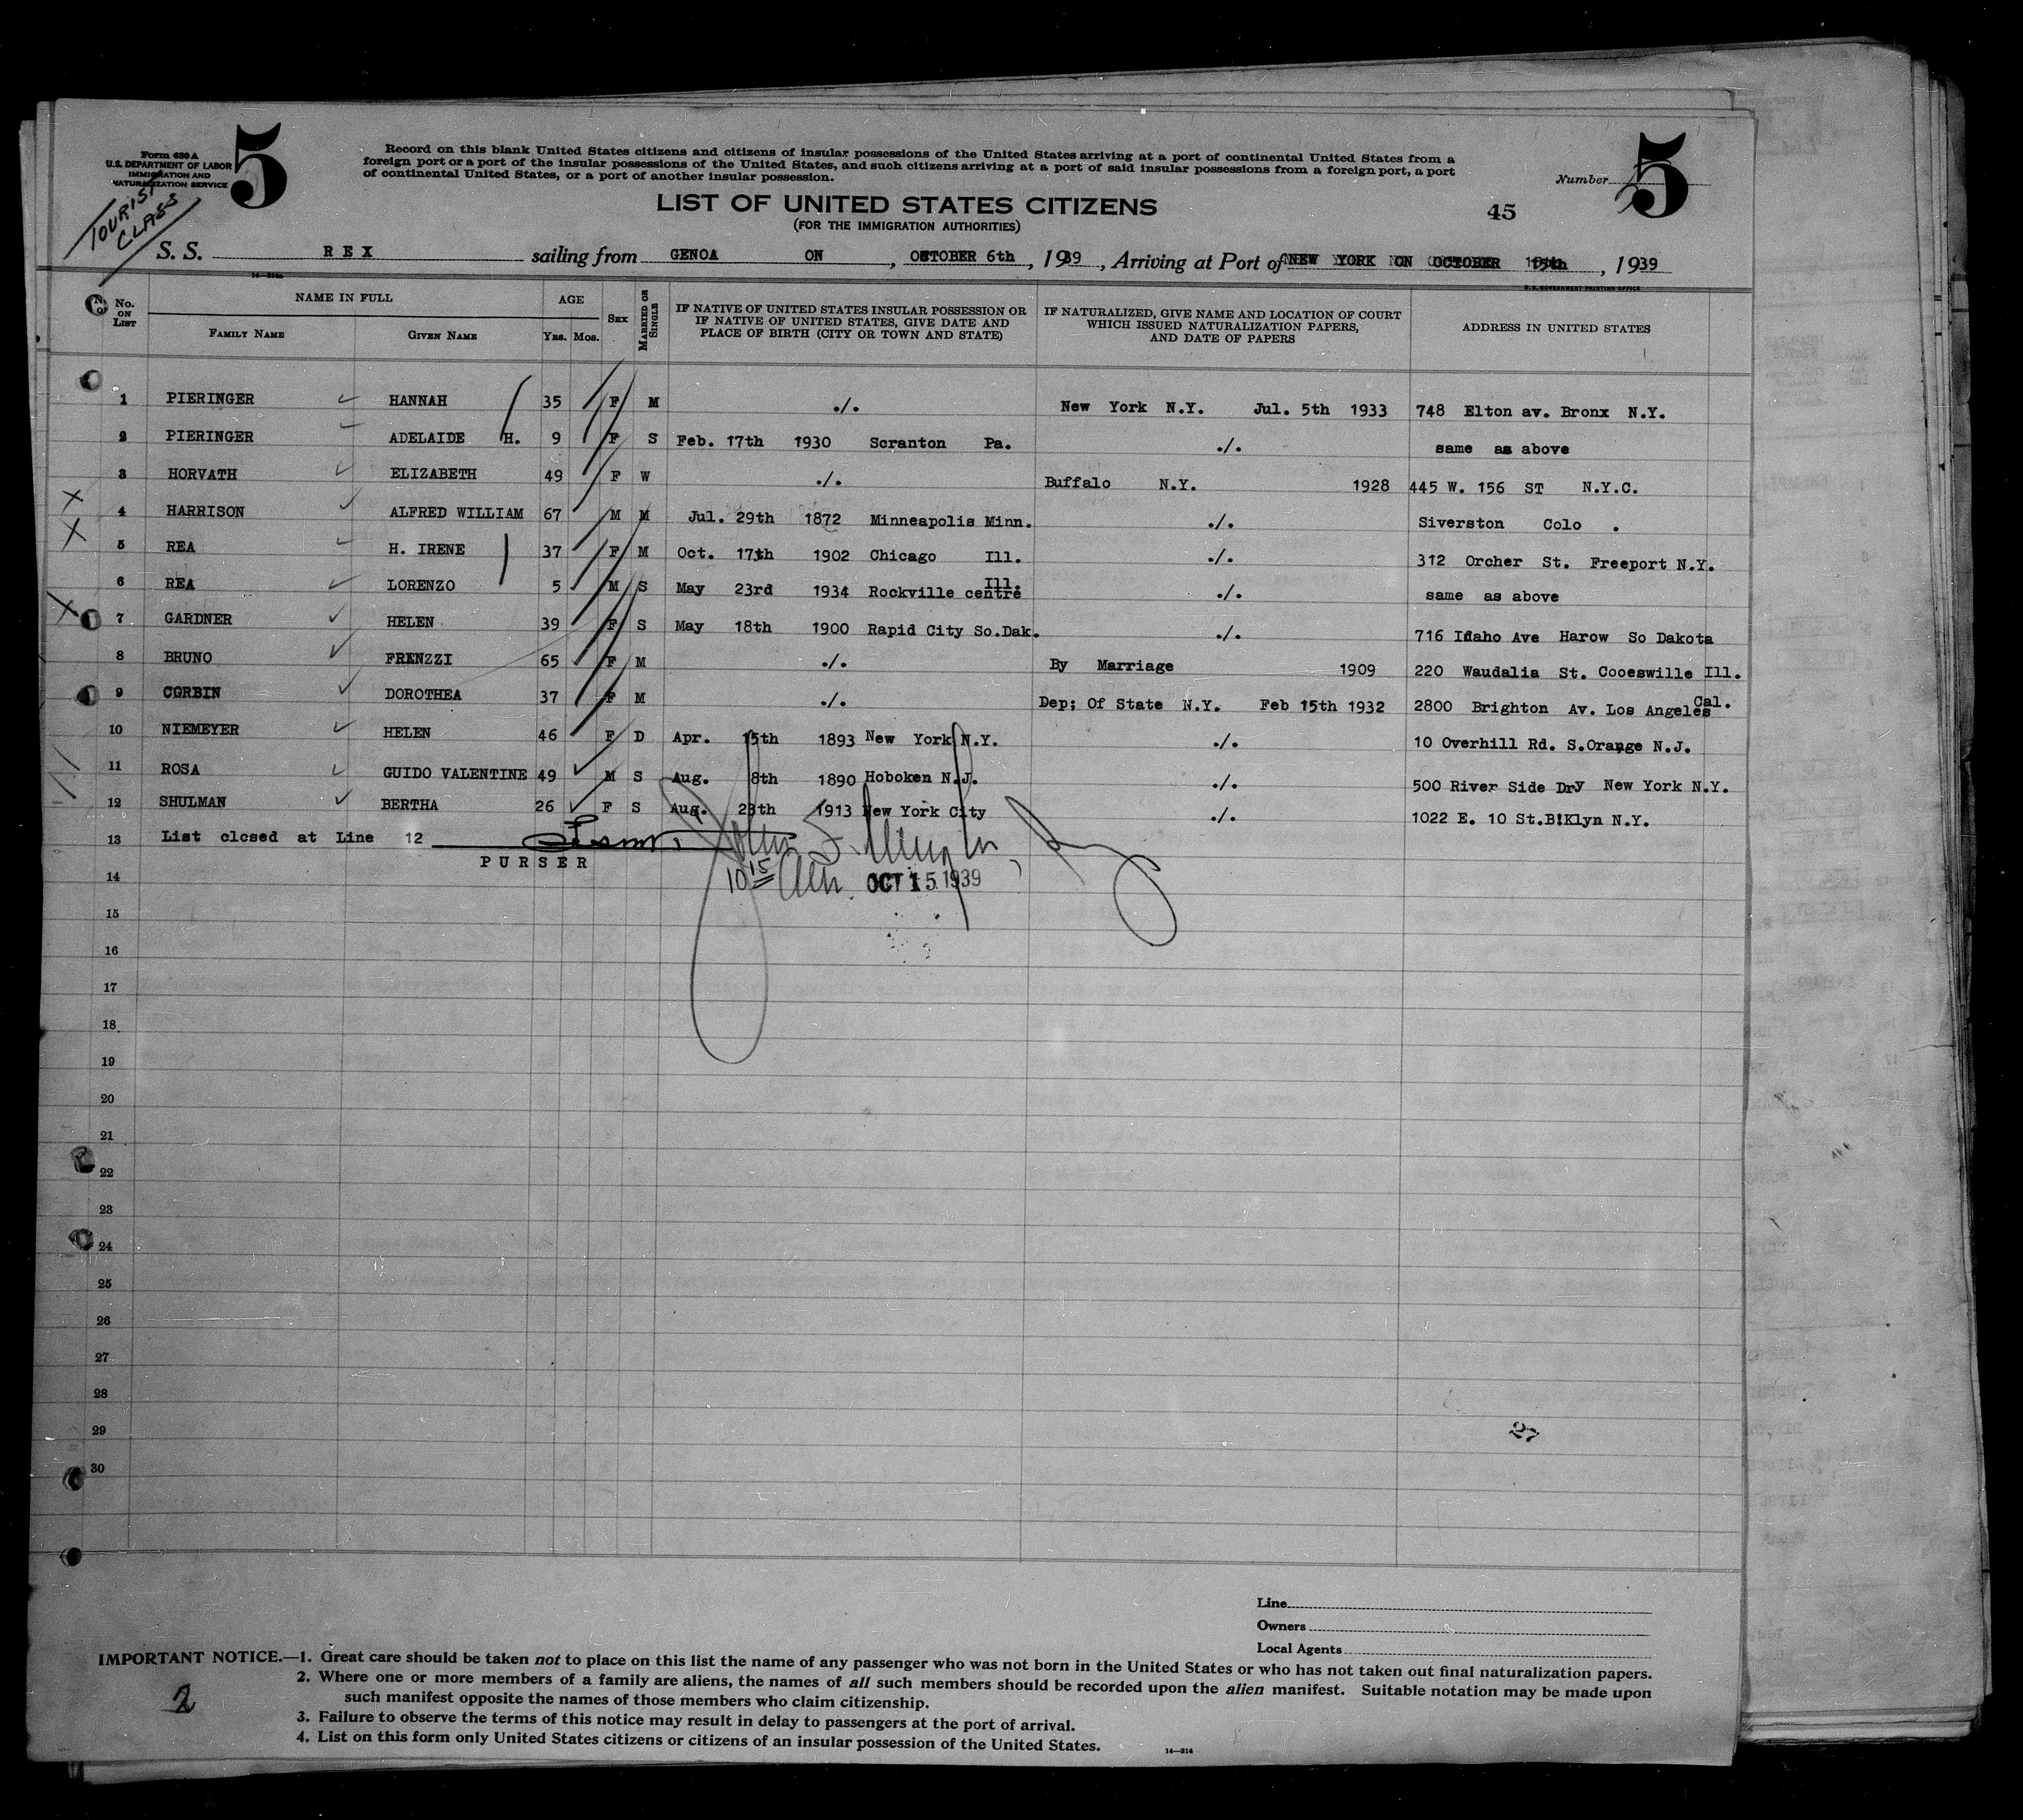 Form 630 A
U.S. DEPARTMENT OF LABOR
IMMIGRATION AND
NATURALIZATION SERVICE
5
TOURIST
CLASS
Record on this blank United States citizens and citizens of insular possessions of the United States arriving at a port of continental United States from a
foreign port or a port of the insular possessions of the United States, and such citizens arriving at a port of said insular possessions from a foreign port, a port
of continental United States, or a port of another insular possession.
Number 5
LIST OF UNITED STATES CITIZENS
(FOR THE IMMIGRATION AUTHORITIES)
45
S. S. REX sailing from GENOA ON, OCTOBER 6th, 1939, Arriving at Port of NEW YORK ON OCTOBER 15th, 1939
U.S. GOVERNMENT PRINTING OFFICE
No. ON LIST
NAME IN FULL
FAMILY NAME GIVEN NAME
AGE
Yrs. Mos.
SEX
MARRIED OR SINGLE
IF NATIVE OF UNITED STATES INSULAR POSSESSION OR
IF NATIVE OF UNITED STATES, GIVE DATE AND
PLACE OF BIRTH (CITY OR TOWN AND STATE)
IF NATURALIZED, GIVE NAME AND LOCATION OF COURT
WHICH ISSUED NATURALIZATION PAPERS,
AND DATE OF PAPERS
ADDRESS IN UNITED STATES
1 PIERINGER HANNAH 35 F M ./. New York N.Y. Jul. 5th 1933 748 Elton av. Bronx N.Y.
2 PIERINGER ADELAIDE H. 9 F S Feb. 17th 1930 Scranton Pa. ./. same as above
3 HORVATH ELIZABETH 49 F W ./. Buffalo N.Y. 1928 445 W. 156 ST N.Y.C.
4 HARRISON ALFRED WILLIAM 67 M M Jul. 29th 1872 Minneapolis Minn. ./. Siverston Colo .
5 REA H. IRENE 37 F M Oct. 17th 1902 Chicago Ill. ./. 312 Orcher St. Freeport N.Y.
6 REA LORENZO 5 M S May 23rd 1934 Rockville centre Ill. ./. same as above
7 GARDNER HELEN 39 F S May 18th 1900 Rapid City So.Dak. ./. 716 Idaho Ave Harow So Dakota
8 BRUNO FRENZZI 65 F M ./. By Marriage 1909 220 Waudalia St. Cooeswille Ill.
9 CORBIN DOROTHEA 37 F M ./. Dep; Of State N.Y. Feb 15th 1932 2800 Brighton Av. Los Angeles Cal.
10 NIEMEYER HELEN 46 F D Apr. 15th 1893 New York N.Y. ./. 10 Overhill Rd. S.Orange N.J.
11 ROSA GUIDO VALENTINE 49 M S Aug. 8th 1890 Hoboken N.J. ./. 500 River Side Dry New York N.Y.
12 SHULMAN BERTHA 26 F S Aug. 23th 1913 New York City ./. 1022 E. 10 St.B!Klyn N.Y.
13 List closed at Line 12
PURSER
10 15 AM. OCT 15 1939
14
15
16
17
18
19
20
21
22
23
24
25
26
27
28
29
30
27
Line
Owners
Local Agents
IMPORTANT NOTICE.—1. Great care should be taken not to place on this list the name of any passenger who was not born in the United States or who has not taken out final naturalization papers.
2. Where one or more members of a family are aliens, the names of all such members should be recorded upon the alien manifest. Suitable notation may be made upon
such manifest opposite the names of those members who claim citizenship.
3. Failure to observe the terms of this notice may result in delay to passengers at the port of arrival.
4. List on this form only United States citizens or citizens of an insular possession of the United States.
2
14—214